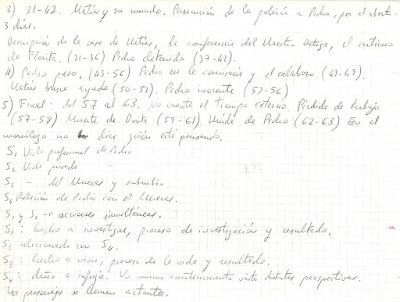 3) 31-42. Matías y su mundo. Persecución de la policía a Pedro, por el aborto.
3 días.
Descripción de la casa de Matías, la conferencia del Maestro Ortega, el entierro
de Florita. (31-36) Pedro detenido (37-42).
4) Pedro preso. (43-56) Pedro en la comisaría y el calabozo (43-49).
Matías busca ayuda (50-51). Pedro inocente (52-56)
5) Final: del 57 al 63. No cuenta el tiempo externo. Pérdida de trabajo
(57-58) Muerte de Dorita (59-61) Huida de Pedro (62-63) En el
monólogo no dice quién está pensando.
S1 Vida profesional de Pedro
S2 Vida privada
S3 - del Muecas y suburbio
S4 Relación de Pedro con el Muecas.
S1 y S2 → acciones simultáneas.
S1: lucha x investigar, proceso de investigación y resultado.
S1 relacionado con S4.
S3: lucha x vivir, proceso de la vida y resultado.
S4: daño a refugio. Va unas distintas perspectivas.
Los personajes se llaman actantes.